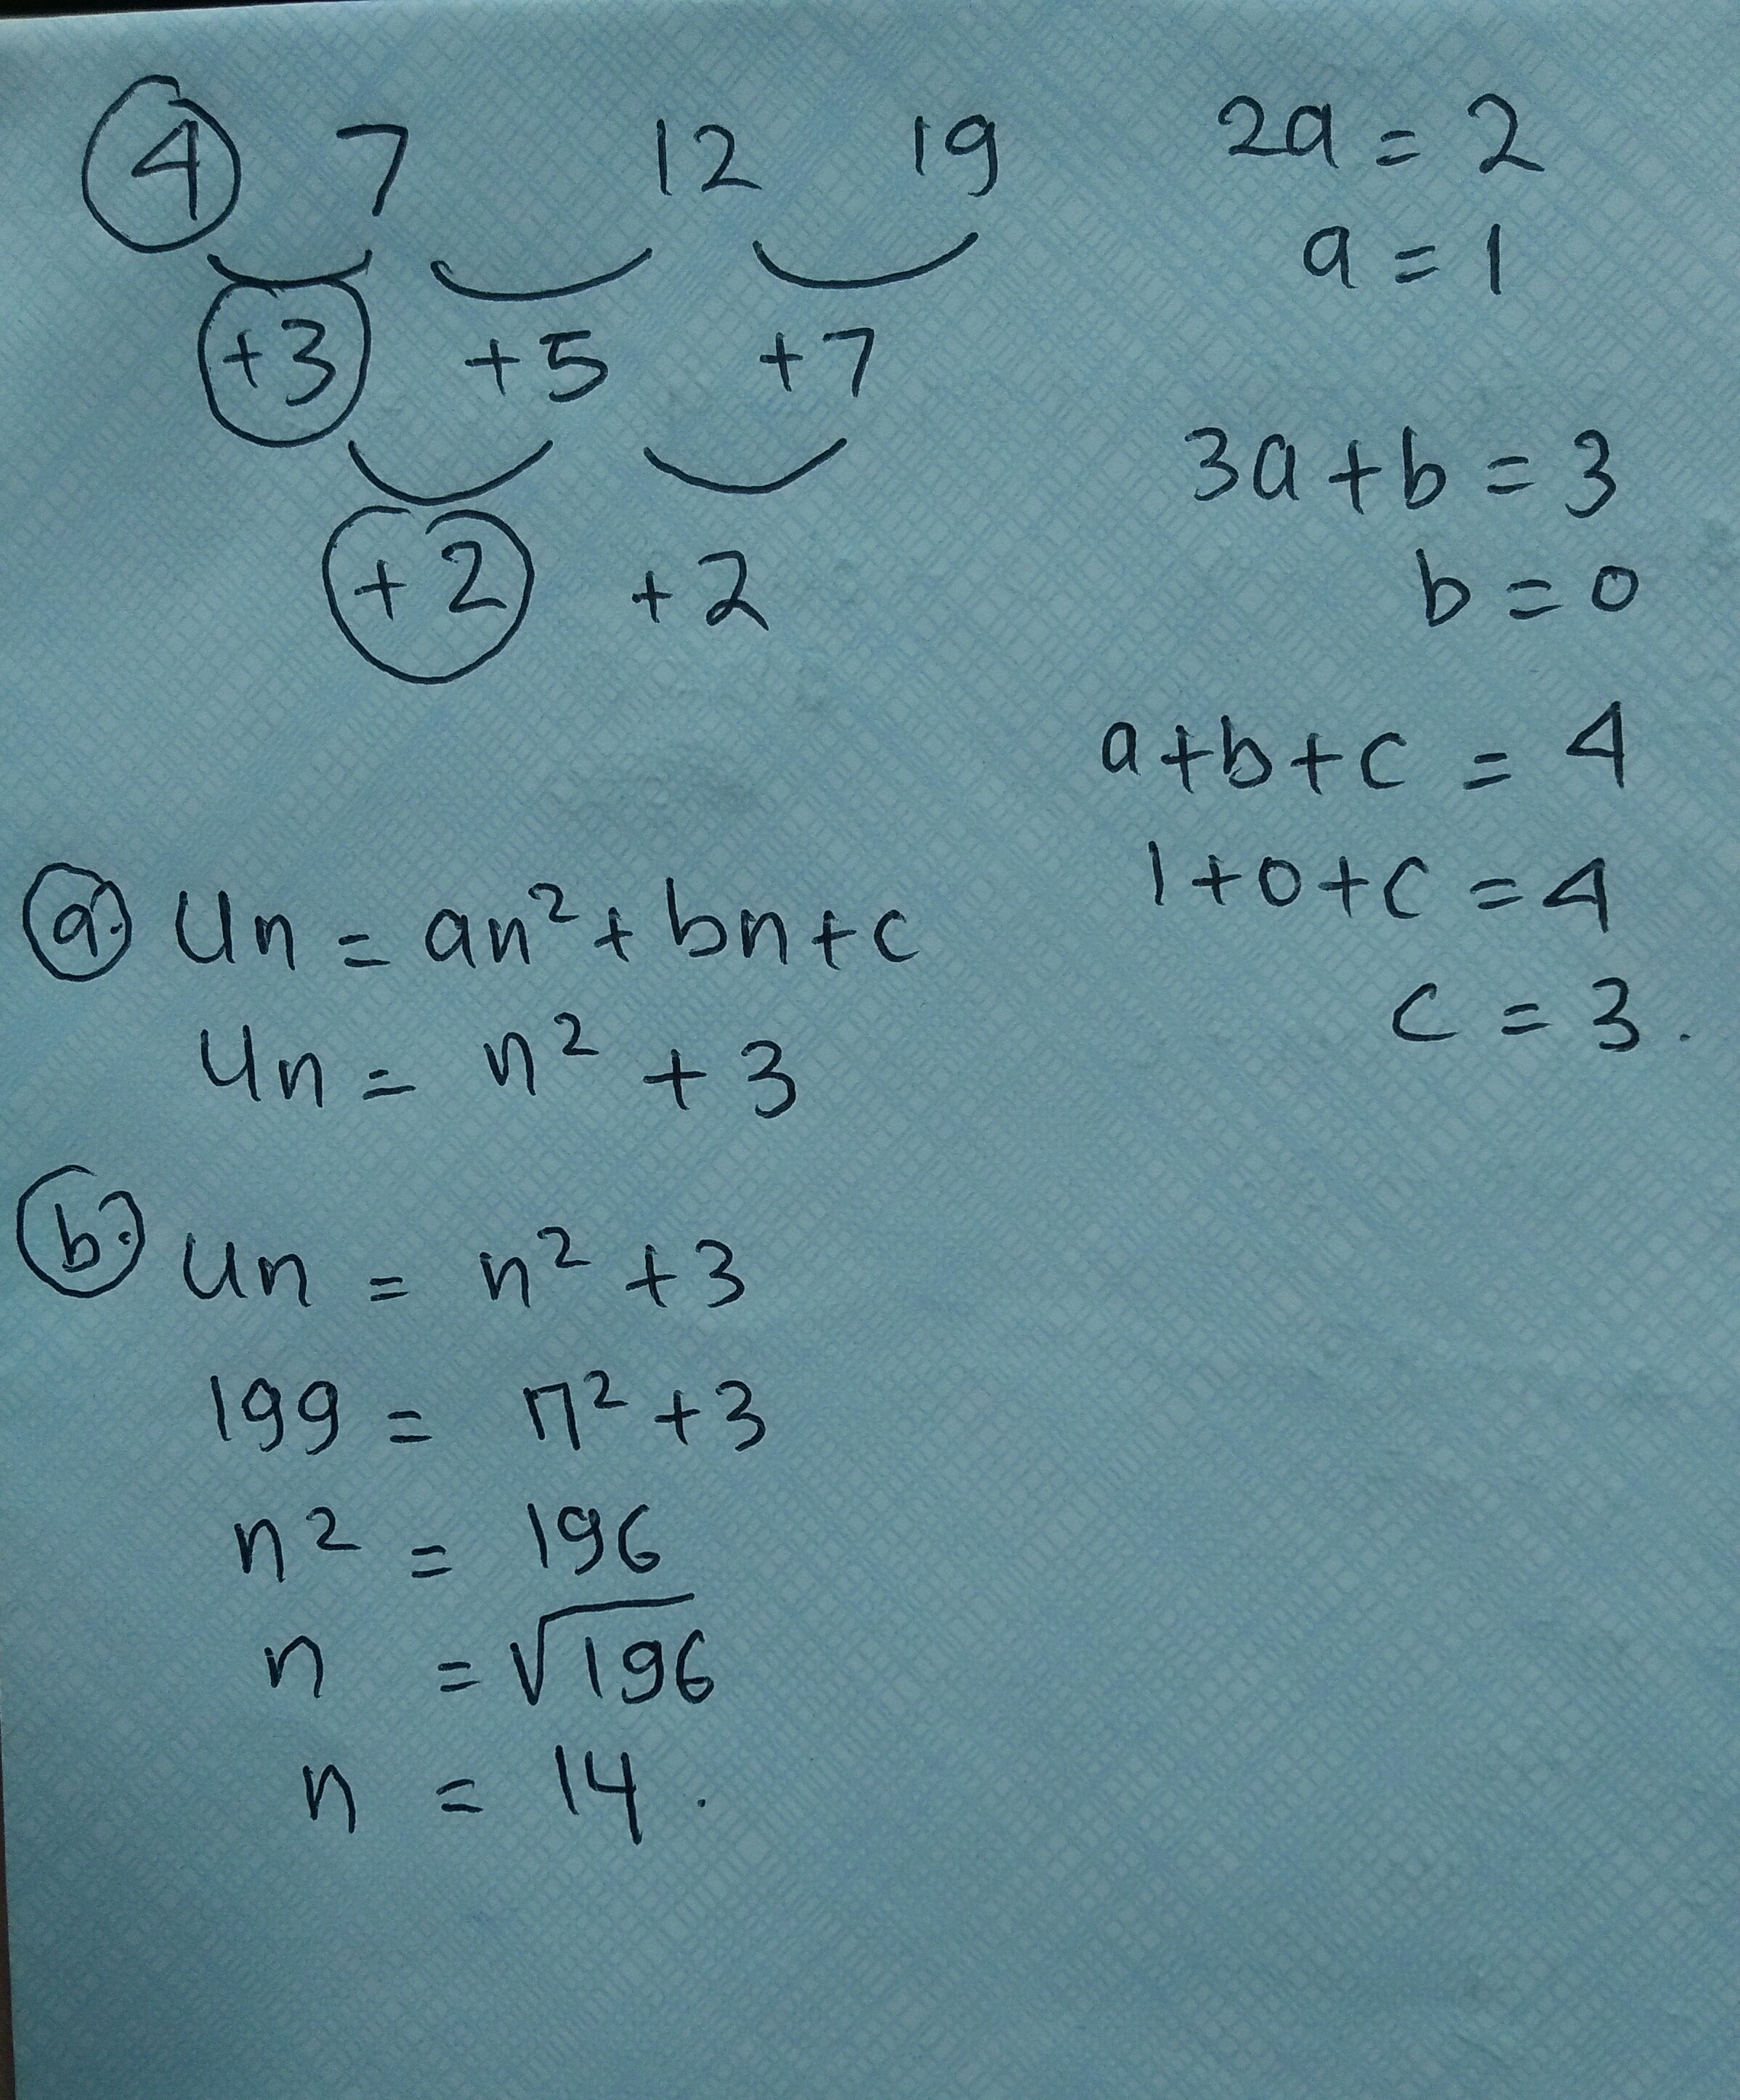 4 7 12 19
+3 +5 +7
+2 +2
2a = 2
a = 1
3a + b = 3
b = 0
a + b + c = 4
1 + 0 + c = 4
c = 3.
a. Un = an² + bn + c
Un = n² + 3
b. Un = n² + 3
199 = n² + 3
n² = 196
n = √196
n = 14.